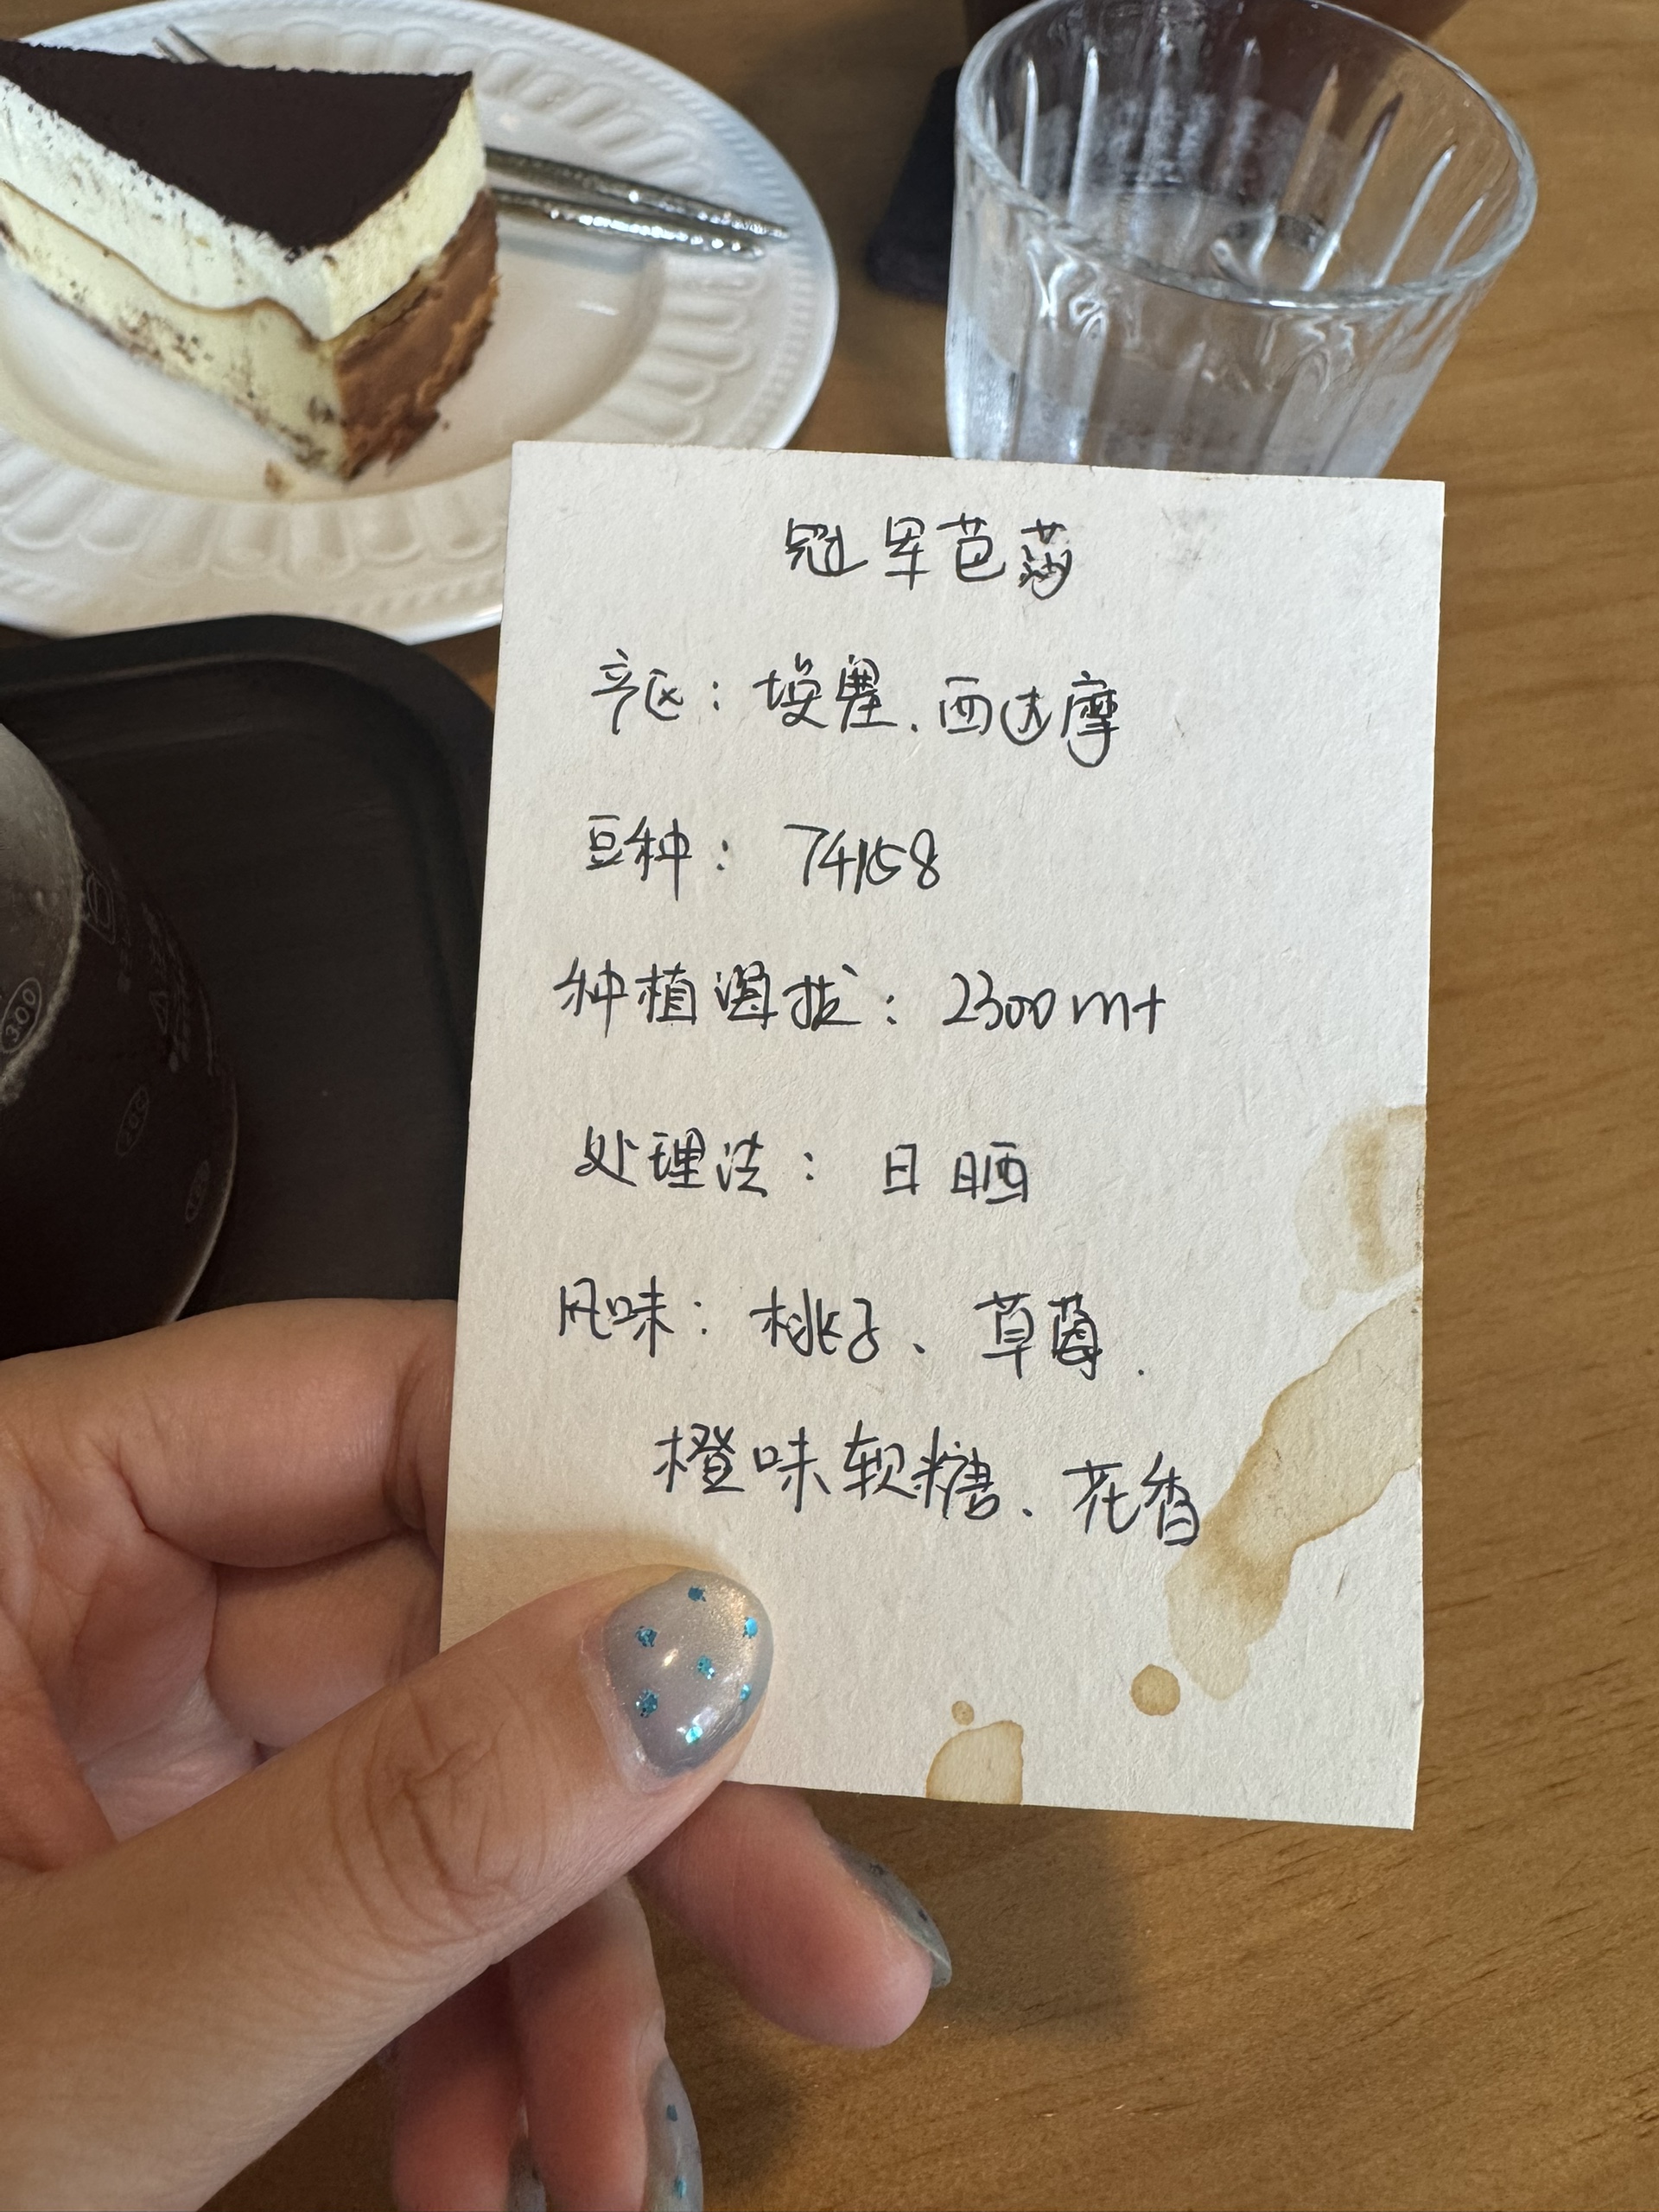 冠军芭莎
产区：埃塞.西达摩
豆种：74158
种植海拔：2300m+
处理法：日晒
风味：桃子、草莓.
橙味软糖.花香
300